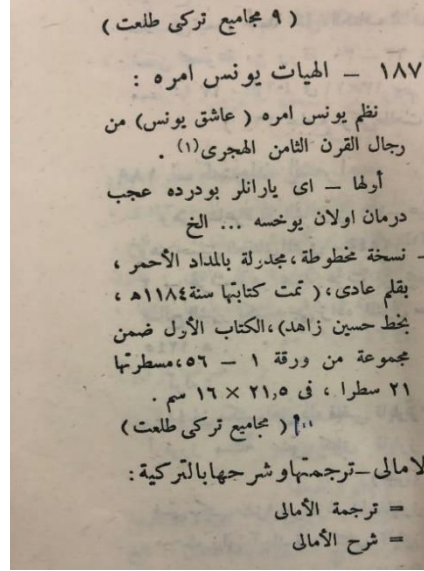 ( ٩ مجاميع تركى طلعت )
١٨٧ – الهيات يونس امره :
نظم يونس امره ( عاشق يونس ) من
رجال القرن الثامن الهجرى (١) .
أولها – اى يارانلر بودرده عجب
درمان اولان يوخسه ... الخ
– نسخة مخطوطة ، مجدرلة بالمداد الأحمر ،
بقلم عادى ، ( تمت كتابتها سنة ١١٨٤ه ،
بخط حسين زاهد ) ، الكتاب الأول ضمن
مجموعة من ورقة ١ – ٥٦ ، مسطرتها
٢١ سطرا ، فى ٢١,٥ × ١٦ سم .
( مجاميع تركى طلعت )
لامالى – ترجمتها وشرحها بالتركية :
= ترجمة الأمالى
= شرح الأمالى